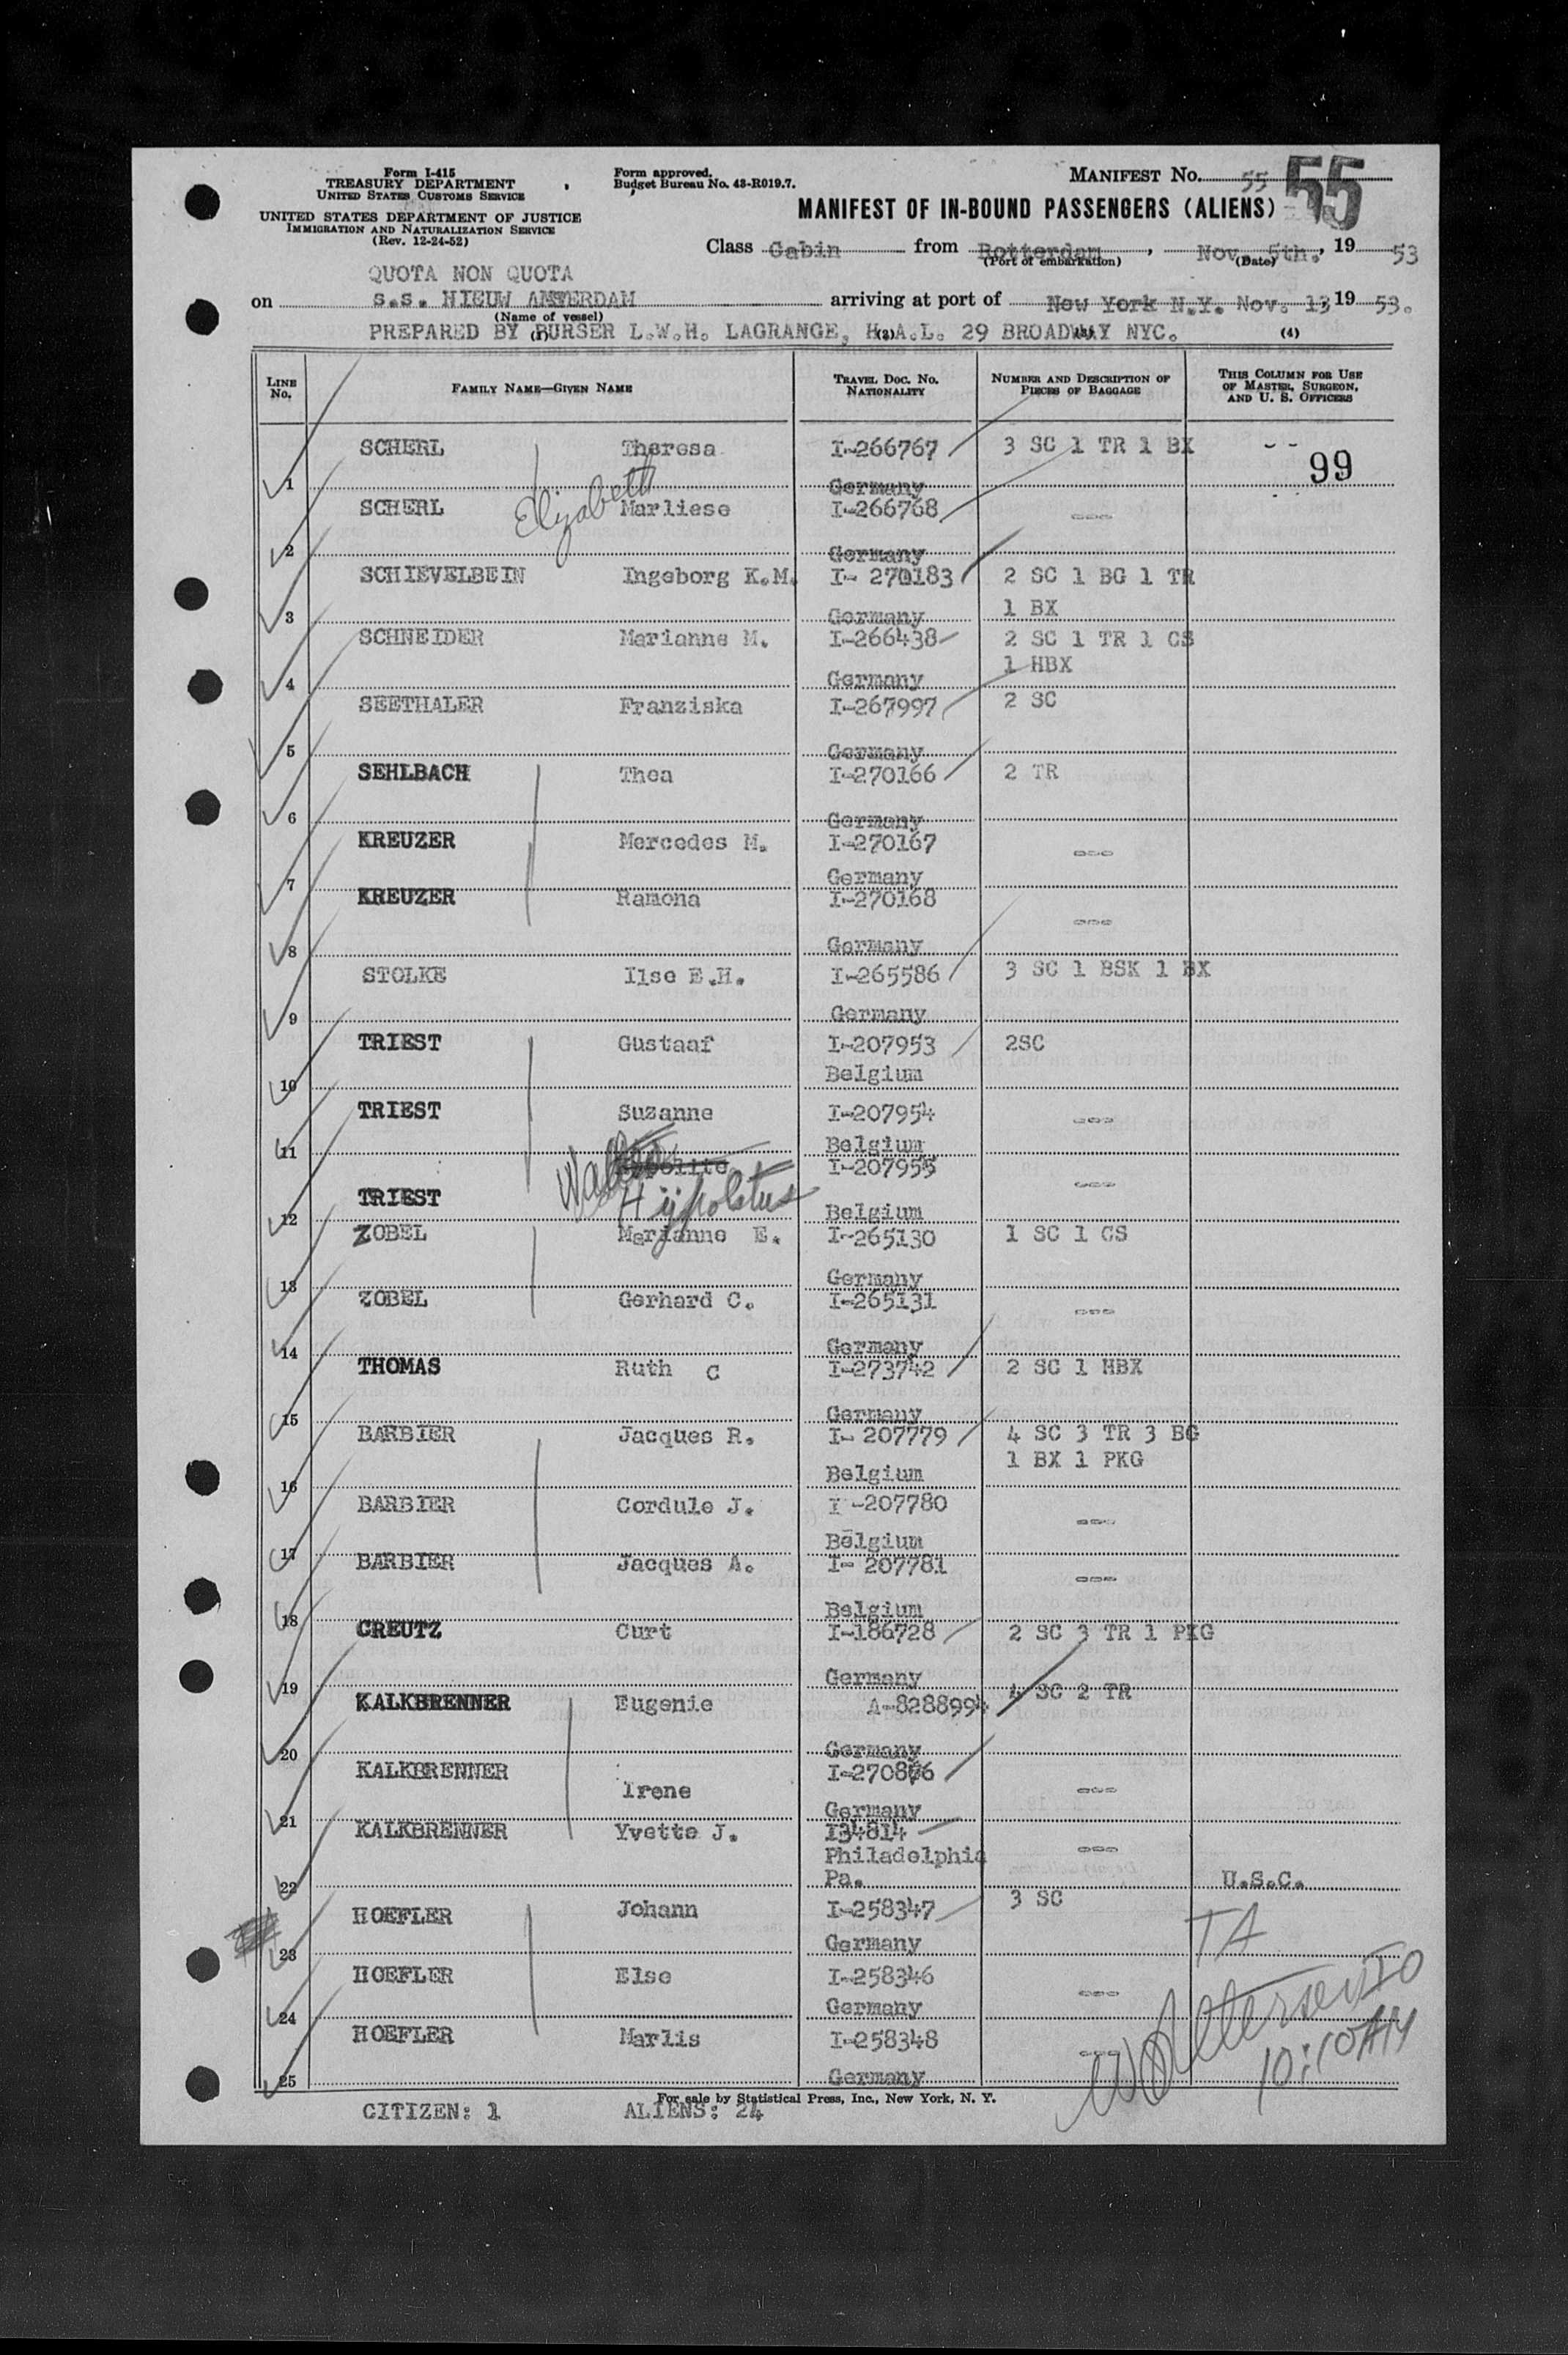 Form I-415
TREASURY DEPARTMENT
UNITED STATES CUSTOMS SERVICE
UNITED STATES DEPARTMENT OF JUSTICE
IMMIGRATION AND NATURALIZATION SERVICE
(Rev. 12-24-52)
Form approved.
Budget Bureau No. 43-R019.7.
MANIFEST No. 55 55
MANIFEST OF IN-BOUND PASSENGERS (ALIENS)
Class Cabin from Rotterdam, Nov. 5th, 19 53
(Port of embarkation) (Date)
QUOTA NON QUOTA
on s.s. NIEUW AMSTERDAM arriving at port of New York N.Y. Nov. 13, 19 53.
(Name of vessel)
PREPARED BY PURSER L.W.H. LAGRANGE, H.A.L. 29 BROADWAY NYC.
(1) (2) (3) (4)
LINE No. FAMILY NAME—GIVEN NAME TRAVEL DOC. No. NATIONALITY NUMBER AND DESCRIPTION OF PIECES OF BAGGAGE THIS COLUMN FOR USE OF MASTER, SURGEON, AND U. S. OFFICERS
SCHERL Theresa I-266767 3 SC 1 TR 1 BX - - 99
1 Germany
SCHERL Elizabeth Marliese I-266768 ---
2 Germany
SCHIEVELBEIN Ingeborg K.M. I- 270183 2 SC 1 BG 1 TR
1 BX
3 Germany
SCHNEIDER Marianne M. I-266438 2 SC 1 TR 1 CS
1 HBX
4 Germany
SEETHALER Franziska I-267997 2 SC
5 Germany
SEHLBACH Thea I-270166 2 TR
6 Germany
KREUZER Mercedes M. I-270167 ---
7 Germany
KREUZER Ramona I-270168 ---
8 Germany
STOLKE Ilse E.H. I-265586 3 SC 1 BSK 1 BX
9 Germany
TRIEST Gustaaf I-207953 2SC
10 Belgium
TRIEST Suzanne I-207954 ---
11 Belgium
I-207955 ---
TRIEST
12 Belgium
ZOBEL Marianne E. I-265130 1 SC 1 CS
13 Germany
ZOBEL Gerhard C. I-265131 ---
14 Germany
THOMAS Ruth C I-273742 2 SC 1 HBX
15 Germany
BARBIER Jacques R. I- 207779 4 SC 3 TR 3 BG
1 BX 1 PKG
16 Belgium
BARBIER Cordule J. I -207780 ---
17 Belgium
BARBIER Jacques A. I- 207781 ---
18 Belgium
CREUTZ Curt I-186728 2 SC 3 TR 1 PKG
19 Germany
KALKBRENNER Eugenie A-8288994 4 SC 2 TR
20 Germany
KALKBRENNER Irene ---
21 Germany
KALKBRENNER Yvette J. 134814 ---
Philadelphia
22 Pa. U.S.C.
HOEFLER Johann I-258347 3 SC
23 Germany TA
HOEFLER Else I-258346 ---
24 Germany
HOEFLER Marlis I-258348 --- 10:10 AM
25 Germany
For sale by Statistical Press, Inc., New York, N. Y.
CITIZEN: 1 ALIENS: 24